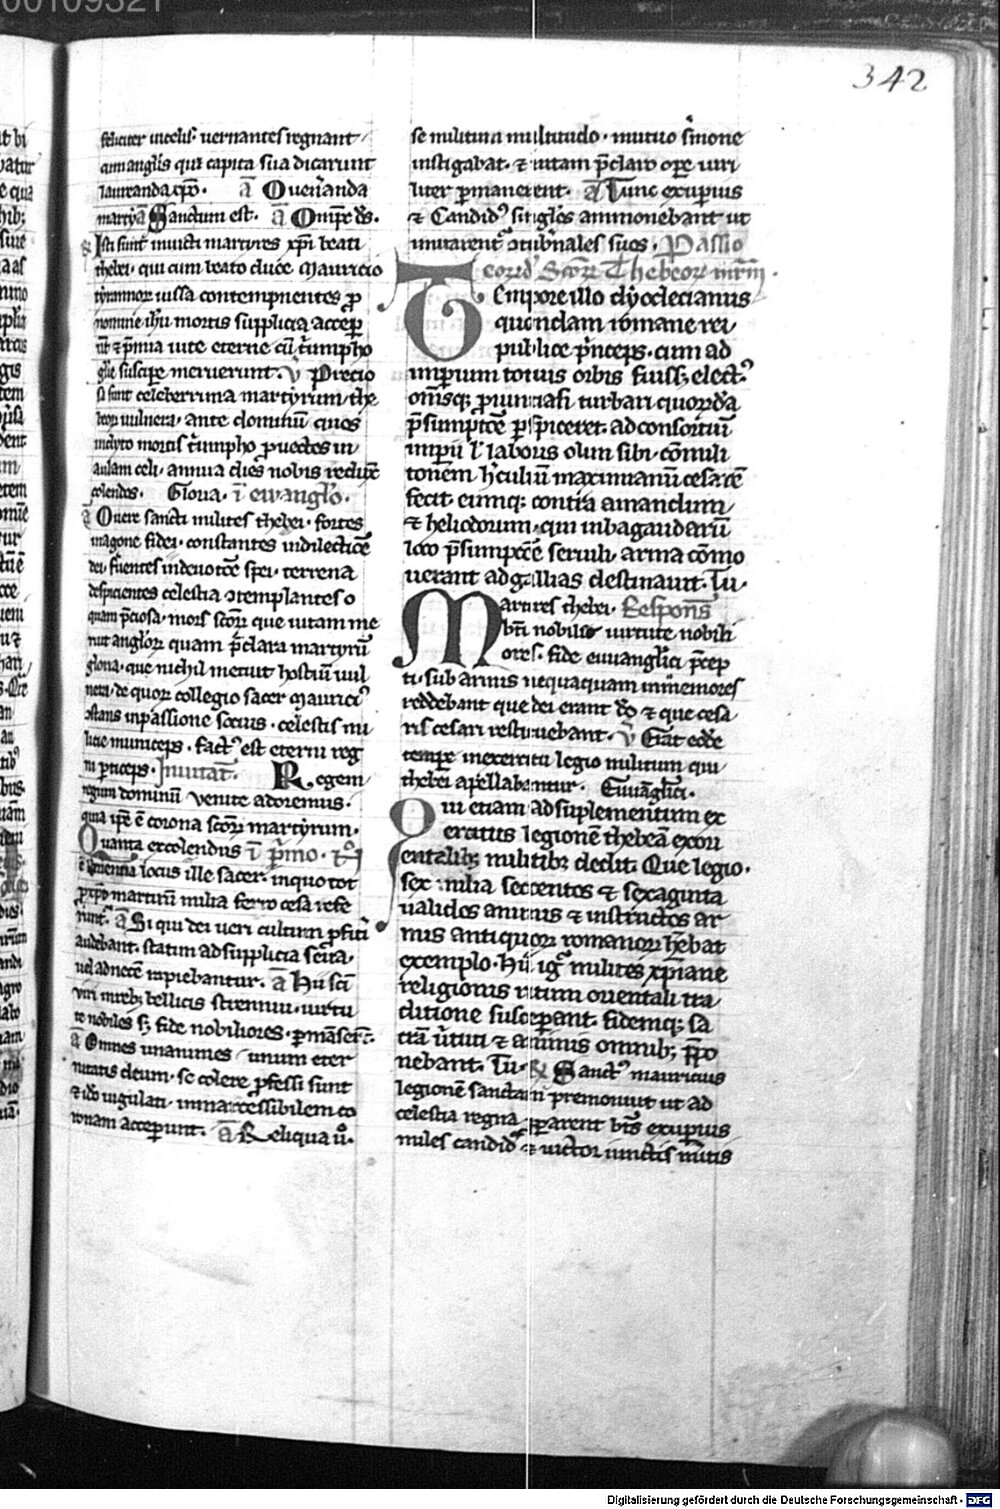 342
feliciter in celis vernantes regnant
cum anglis qui capita sua dicarunt
laureanda xpo. a O ueneranda
martyrū Sanctum est. a O inpre ds.
Isti sunt inuicti martyres xpi beati
thebei. qui cum beato duce Mauricio
tyrannoꝝ iussa contempnentes ꝓ
nomine ihu mortis supplicia acceꝑ
ūt ⁊ p̄mia uite eterne cū tͥumpho
gl̄e suscipe meruerunt. v̄ Precio
sa sunt celeberrima martyrum the
beoꝝ uulnera. ante dominū quos
inclyto mortis tͥumpho ꝓuectos in
aulam celi. annua dies nobis
colendos. Gloria. ī ewanglo.
O uere sancti milites thebei. fortes
magone fidei. constantes in dilectiōe
dei. feruentes in deuotōe spei. terrena
despicientes celestia ↄtemplantes o
quam p̄ciosa. mors sc̄oꝝ que uitam me
ruit angl̓oꝝ quam p̄clara martyrū
gloria. que nichil metuit hostiū uul
nera. de quoꝝ collegio sacer mauriciꝰ
ↄstans in passione socius. celestis mi
licie municeps. factꝰ est eterni reg
ni ꝑticeps. Inuitat̄. Regem
regum dominū venite adoremus.
quia ip̄e ē corona sc̄oꝝ martyrum.
Quanta excolendus ī p̄mo.
locus ille sacer in quo tot
ꝓ xp̄o martirū milia ferro cesa refe
runt̄. a Si qui dei ueri cultum ꝓfiti
audebant. statim ad supplicia
uel ad necem rapiebantur. a Hii sc̄i
viri in reb; bellicis strennui. uirtu
te nobiles s; fide nobiliores.
a Omnes unanimes unum eter
nitatis deum. se colere ꝓfessi sunt
⁊ iō iugulati. inmarcessibilem co
ronam acceꝑunt. a Reliqua ū.
se militum multitudo. mutuo s̄mone
instigabat. ⁊ uitam p̄claro oꝑe uiri
liter ꝑmanerent. a Tunc exuperius
⁊ Candidꝰ sīgl̓os ammonebant ut
imitarent̄ ↄtub̄nales suos. Passio
Sc̄oꝝ Thebeoꝝ
Tempore illo dyoclecianus
quondam romane rei
publice p̄nceps. cum ad
imperium totius orbis fuiss; electꝰ
om̄sq; prouincias turbari quorūdā
p̄sumptōe ꝑspiceret. ad consortiū
imperii l̓ laboris olim sibi cōmili
tonem h̓culiū maximianū cesarē
fecit. eumq; contra amandum
⁊ heliodorum. qui in bagaudarū
loco p̄sumpcōe seruili. arma cōmo
uerant ad gallias destinauit. Tu.
Martires thebei. Respons
bn̄ nobiles uirtute nobili
ores. fide euuanglica p̄cep
ti. sub armis nequaquam inmemores
reddebant que dei erant do ⁊ que cesa
ris cesari restituebant. v̄ Erat eodē
tempre in exercitu legio militum qui
thebei apellabantur. Euuāglic̄.
Qui etiam ad suplementum ex
ercitus legionē thebeā ex ori
entalib; militib; dedit. Que legio.
sex milia secentos ⁊ sexaginta
ualidos animis ⁊ instructos ar
mis antiquoꝝ romanoꝝ hēbat
exemplo. Hii igͥ milites xp̄iane
religionis ritum orientali tra
ditione susceperant. fidemq; sa
crā ūtuti ⁊ armis omnib; p̄po
nebant. Tu. Sanctꝰ mauricius
legionē sanctam premonuit ut ad
celestia regna ꝓperarent bt̄s exuperius
miles candidꝰ ⁊ uictor iunctis
Digitalisierung gefördert durch die Deutsche Forschungsgemeinschaft - DFG